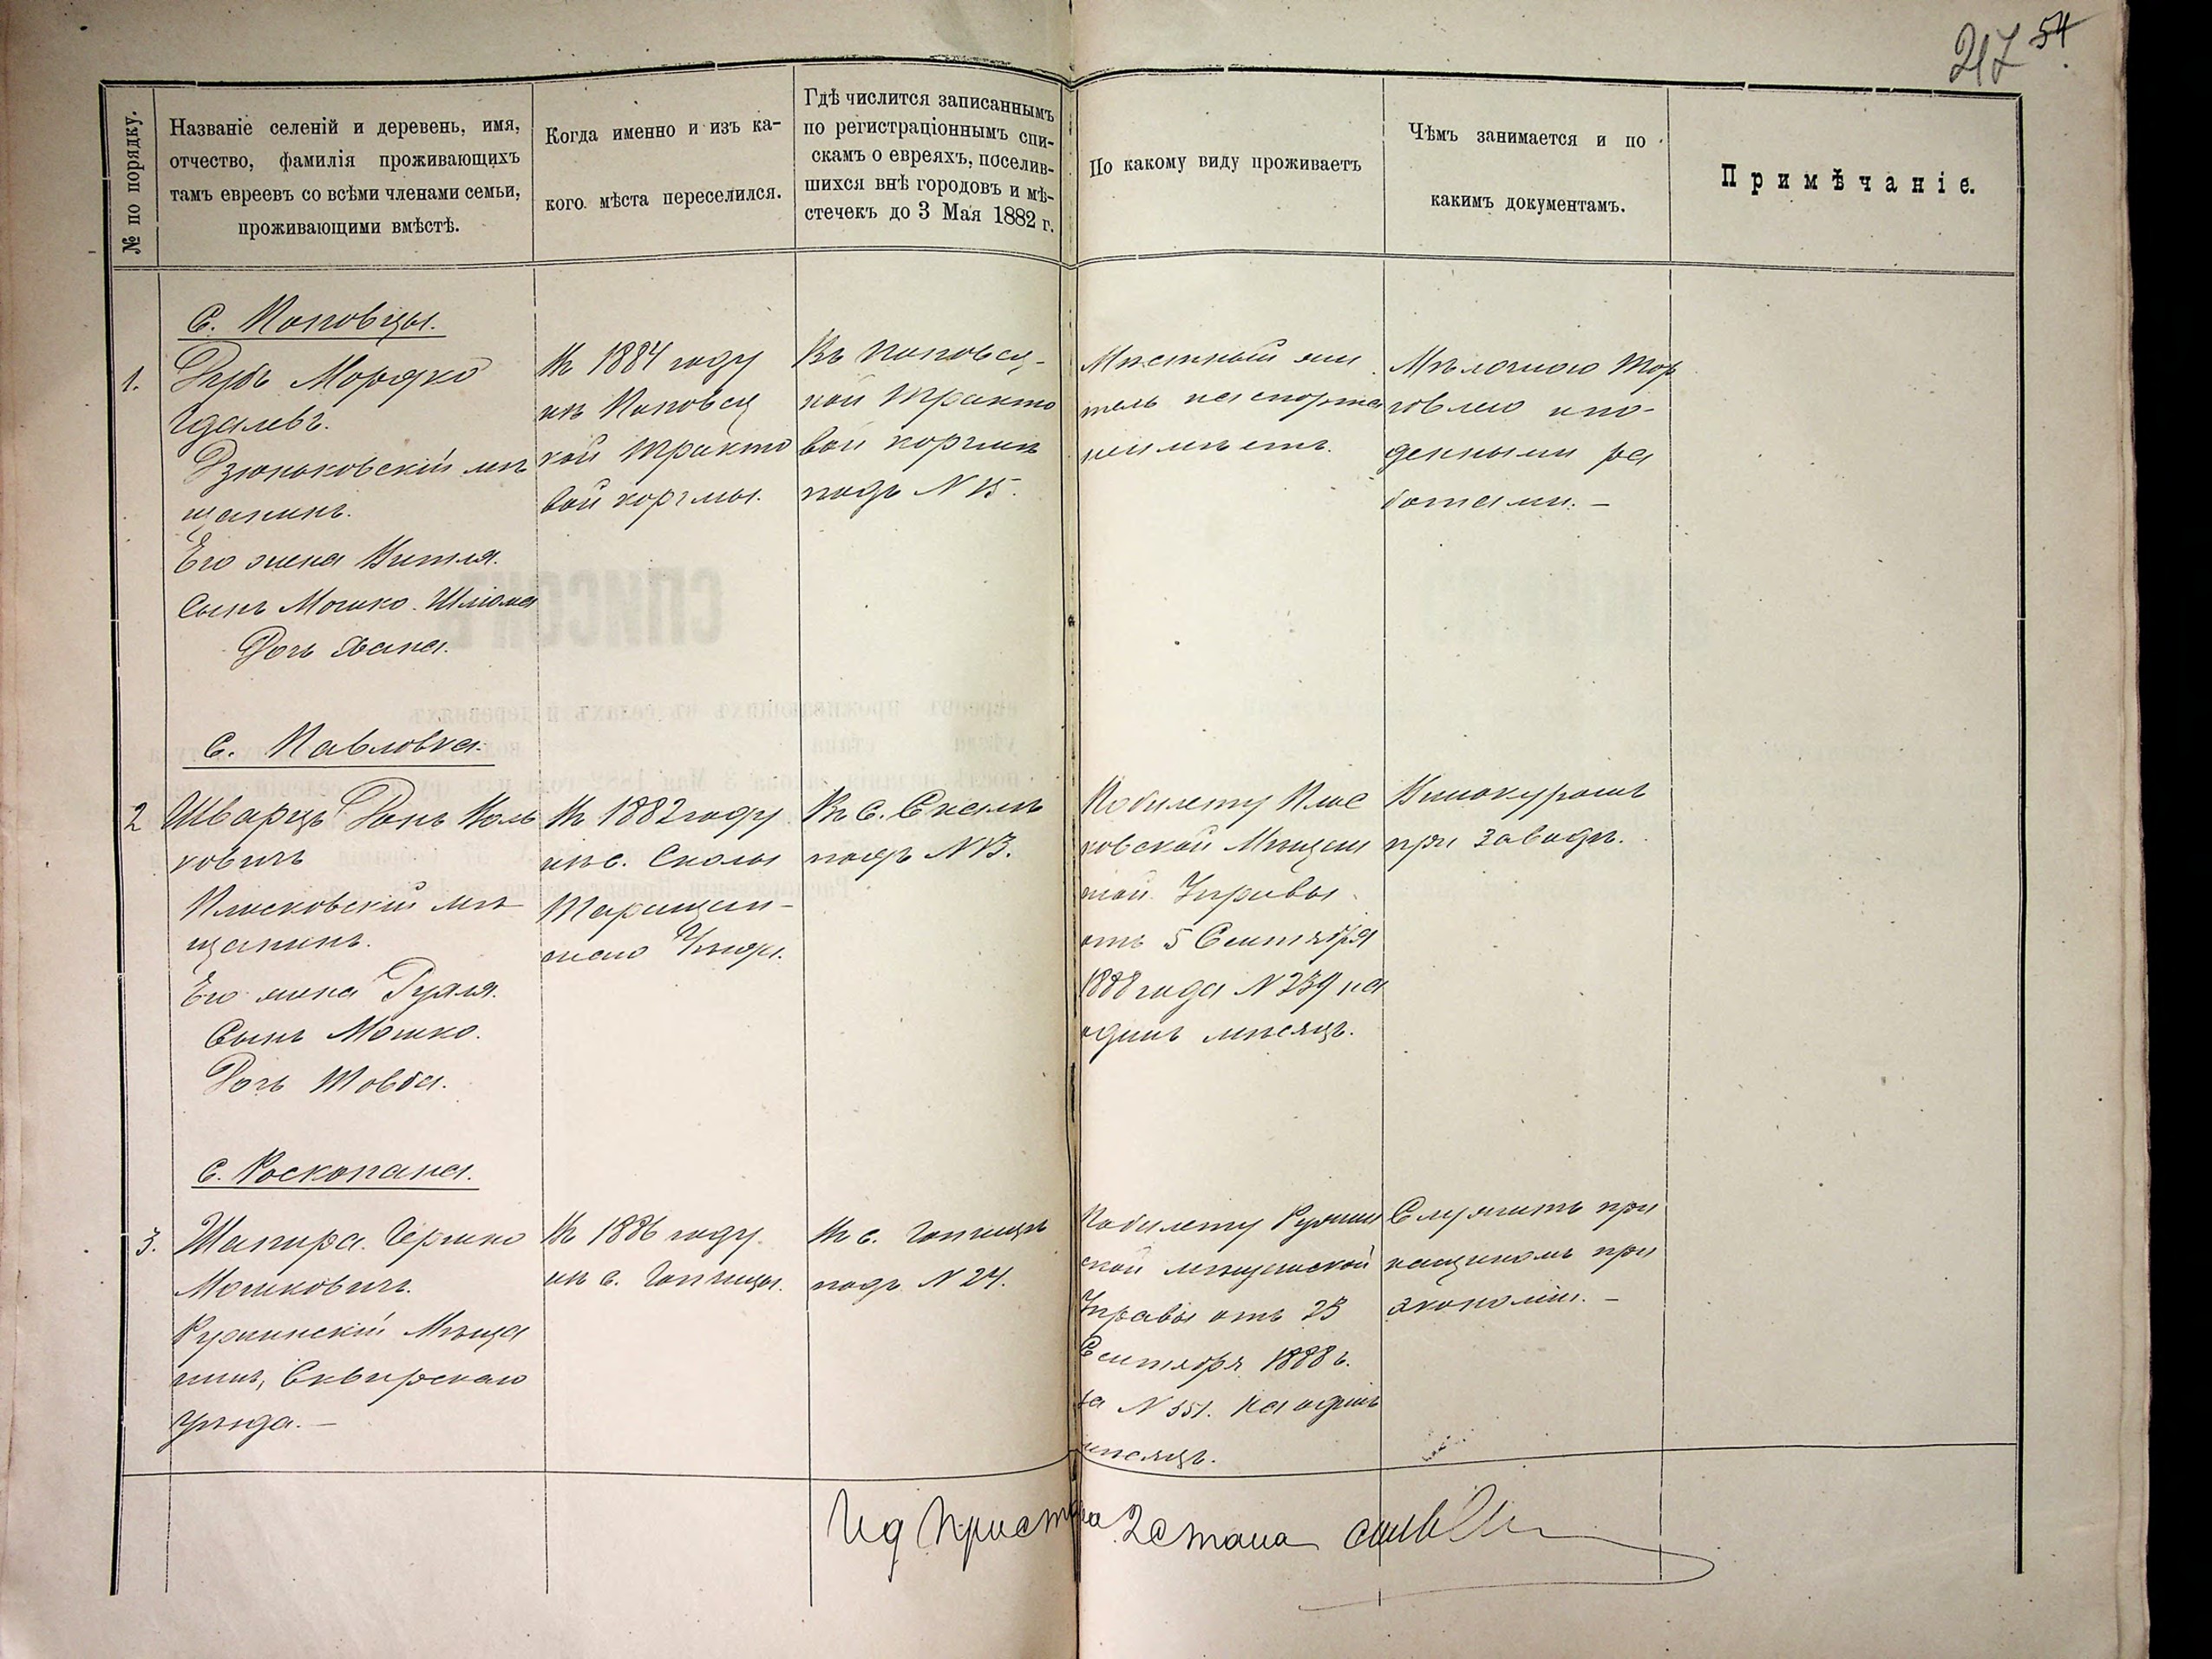 217 54
№ по порядку.
Названіе селеній и деревень, имя,
отчество, фамилія проживающихъ
тамъ евреевъ со всѣми членами семьи,
проживающими вмѣстѣ.
Когда именно и изъ ка-
кого мѣста переселился.
Гдѣ числится записаннымъ
по регистраціоннымъ спи-
скамъ о евреяхъ, поселив-
шихся внѣ городовъ и мѣ-
стечекъ до 3 Мая 1882 г.
По какому виду проживаетъ
Чѣмъ занимается и по
какимъ документамъ.
Примѣчаніе.
С. Поповцы.
1.
Мордко
Дзюньковскій мѣ
щанинъ.
Его жена
Сынъ Мошко. Шлiома
Дочь Хана.
Въ 1884 году
изъ Поповец
кой тракто
вой корчмы.
Въ Поповец-
кой тракто
вой корчмѣ
подъ N 15.
Мѣстный жи
тель паспорта
неимѣетъ.
Мѣлочною тор
говлею и по-
денными ра
ботами. —
С. Павловка.
2
Шварцъ
ковичъ
Плисковскій мѣ
щанинъ.
Его жена Рухля.
Сынъ Мошко.
Дочь Товба.
Въ 1882 году
изъ с. Скалы
Таращан-
скаго Уѣзда.
Въ с. Скалѣ
подъ N 13.
По билету Плис
ковской Мѣщан
ской Управы
отъ 5 Сентября
1888 года N 239 на
одинъ мѣсяцъ.
Винокуромъ
при заводѣ.
С. Роскопана.
3.
Шапира. Гершко
Мошковичъ.
Ружинскій Мѣща
нинъ, Сквирскаго
уѣзда. —
Въ 1886 году
изъ с. Топчицы.
Въ с.
подъ N 24.
По билету Ружин
ской мѣщанской
Управы отъ 23
Сентября 1888 г.
за N 551. на одинъ
мѣсяцъ.
Служитъ при
кащикомъ при
экономіи. —
Ид Пристава 2 стана